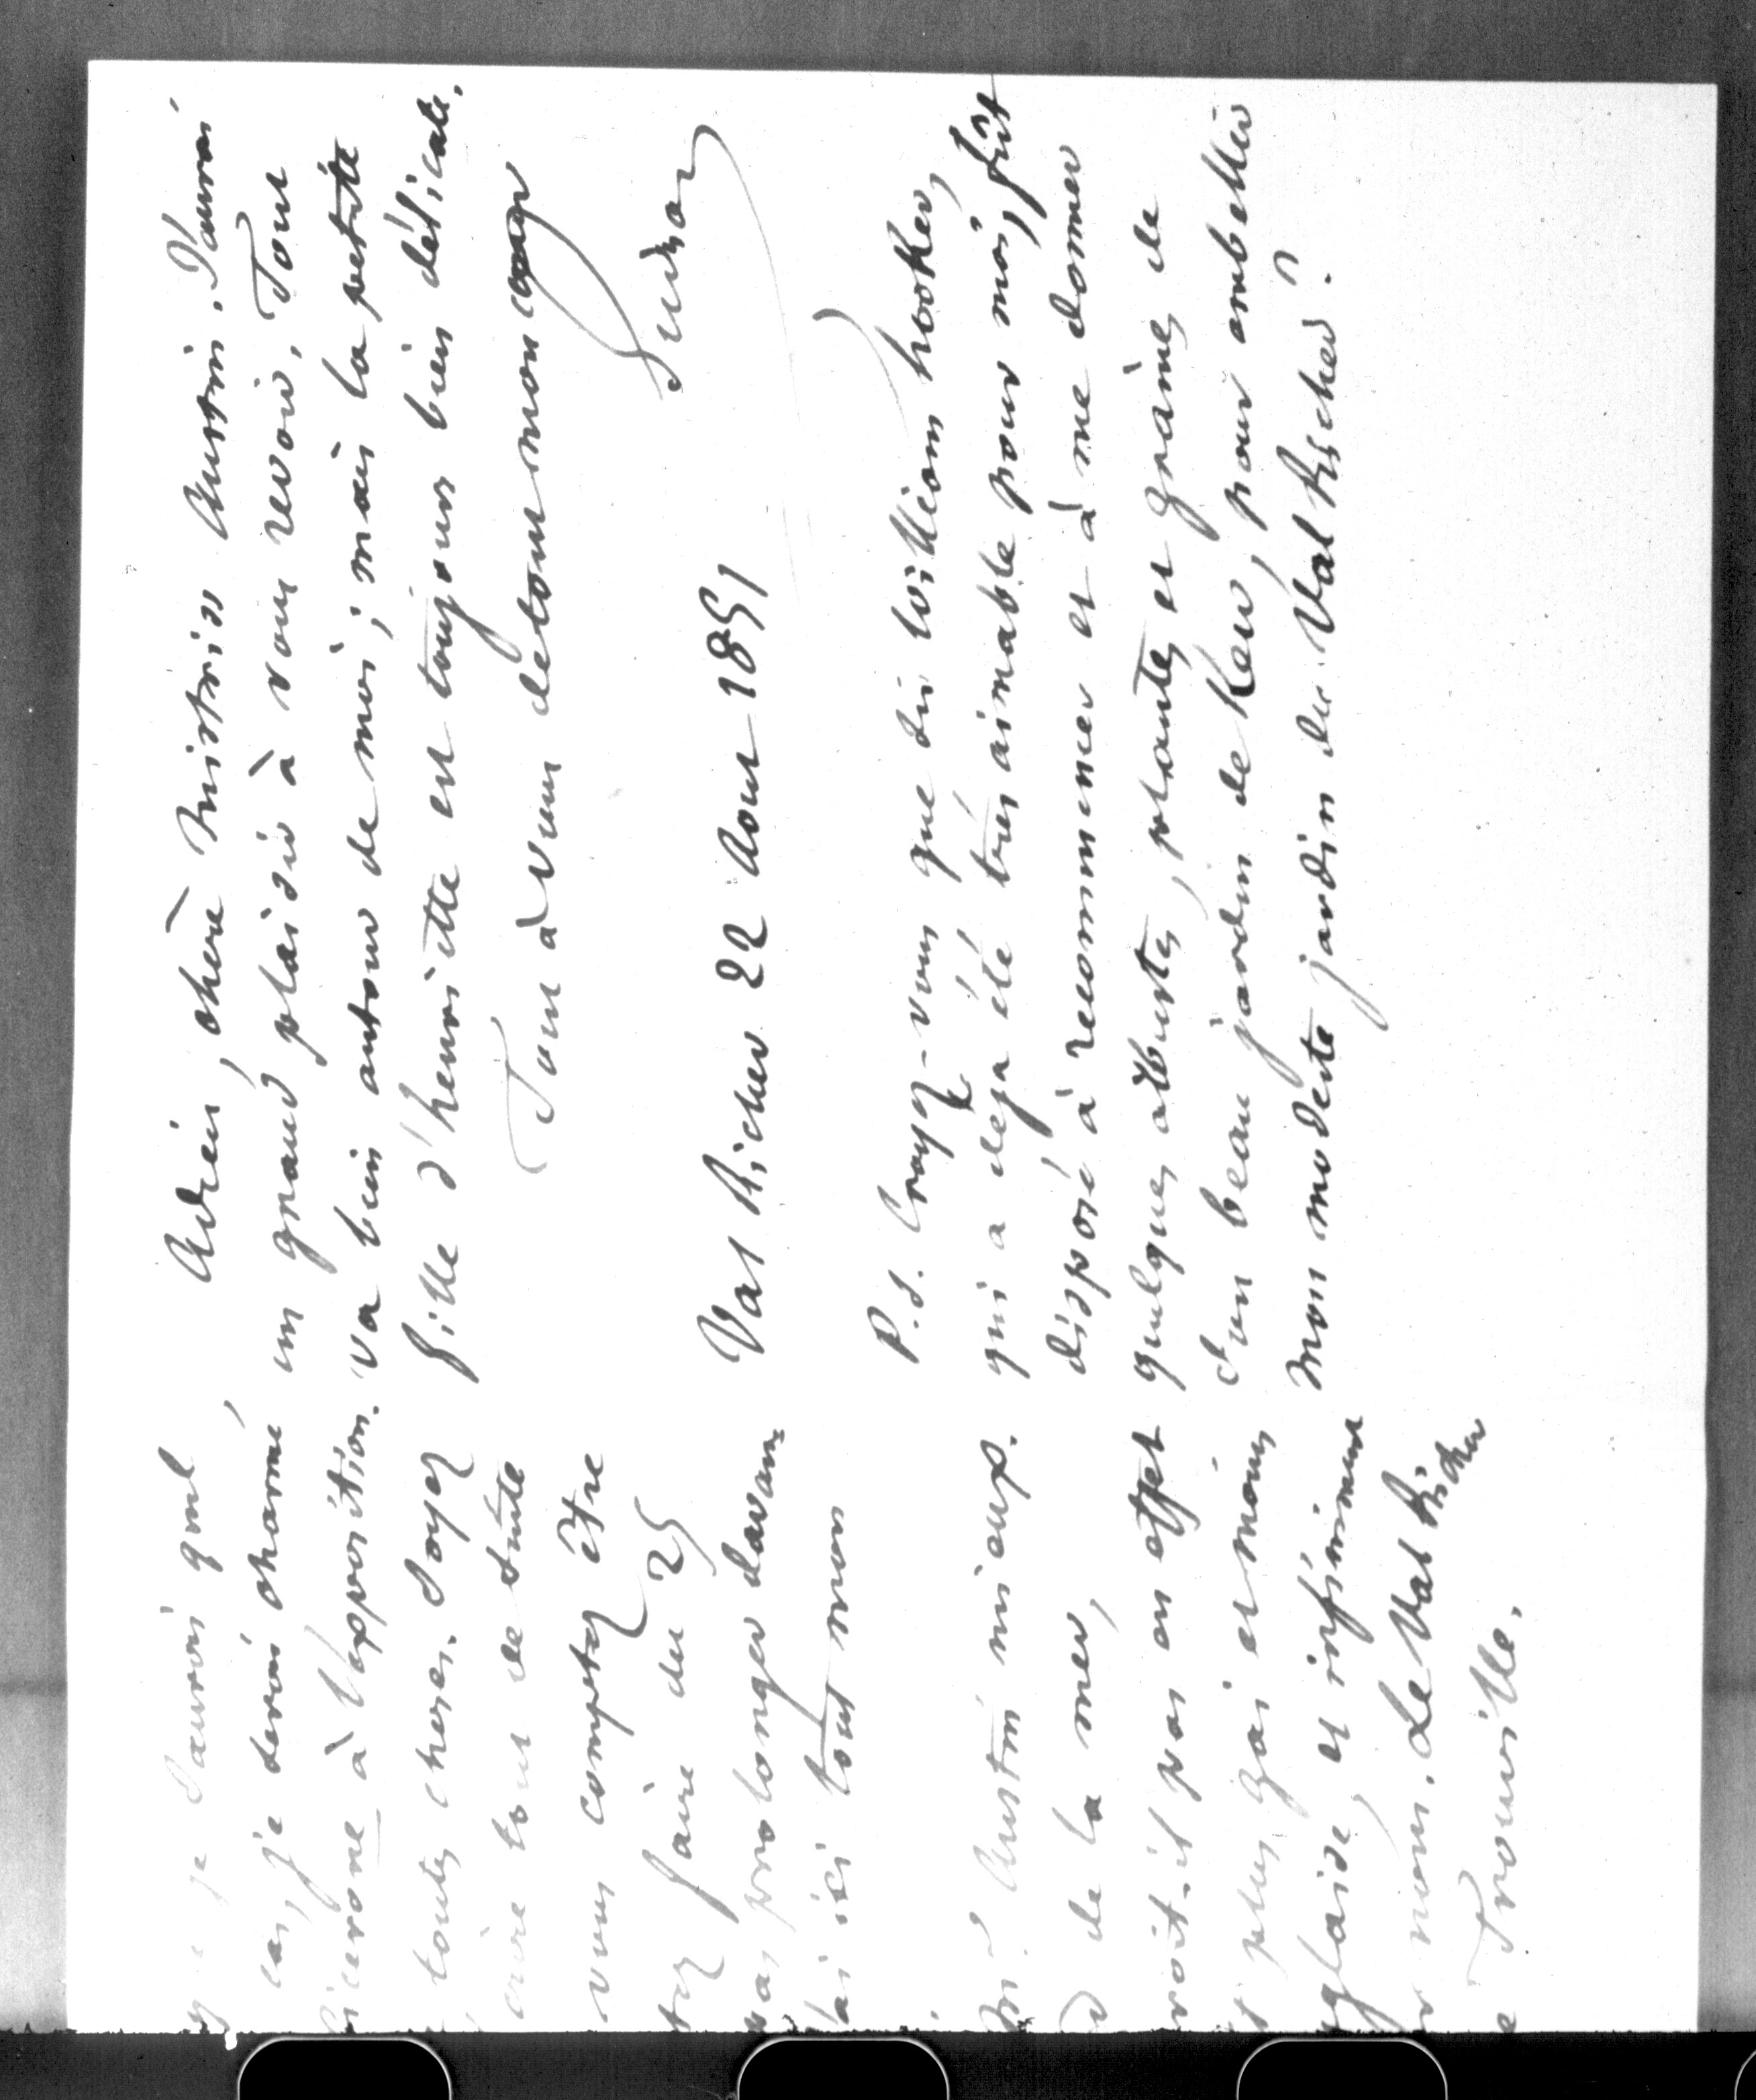 je saurois quel
cas, je serois charmé
cicerone à l'exposition.
toutes choses. Soyez
crire tout de suite
vous comptez être
tez faire du 25
pas prolonger davan-
lai ici tout mon
Mr. Austin mieux.
de la mer,
roit-il pas en effet
t plus gai et moins
glaise, et infiniment
r nous. Le Val Richer
e Trouville.
Adieu, chère Mistriss Austin. J'aurai
un grand plaisir à vous revoir. Tout
va bien autour de moi; mais la petite
fille d'henriette est toujours bien délicate.
Tout à vous de tout mon cœur
Guizot
Val Richer 22 Aout 1851
P.S. Croyez-vous que Sir William hooker,
qui a déja été très aimable pour moi, fût
disposé à recommencer et à me donner
quelques arbustes, plantes et graines de
son beau jardin de Kew, pour embellir
mon modeste jardin du Val Richer?